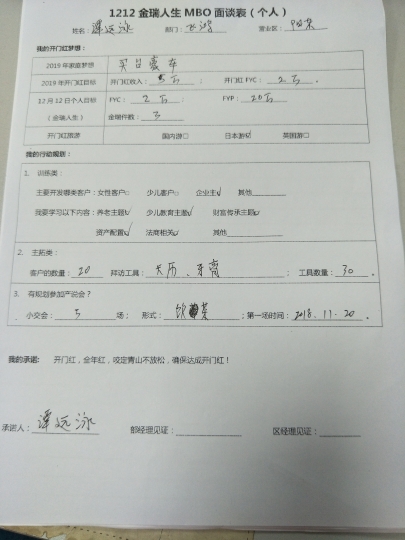 1212 金瑞人生 MBO 面谈表（个人）
姓名：谭远泳 部门：飞鸿 营业区：
我的开门红梦想：
2019 年家庭梦想 买台豪车
2019 年开门红目标 开门红收入：5万 开门红 FYC：2万
12 月 12 日个人目标（金瑞人生） FYC：2万 FYP：20万
金瑞件数：3
开门红旅游 国内游□ 日本游☑ 英国游□
我的行动规划：
1. 训练类：
主要开发哪类客户：女性客户□ 少儿客户□ 企业主☑ 其他
我要学习以下内容：养老主题☑ 少儿教育主题☑ 财富传承主题☑
资产配置☑ 法商相关☑ 其他
2. 主拓类：
客户的数量：20 拜访工具：大历、牙膏 ；工具数量：30 。
3. 有规划参加产说会？
小交会：5 场； 形式：饮 茶 ；第一场时间：2018.11.20 。
我的承诺： 开门红，全年红，咬定青山不放松，确保达成开门红！
承诺人：谭远泳 部经理见证： 区经理见证：